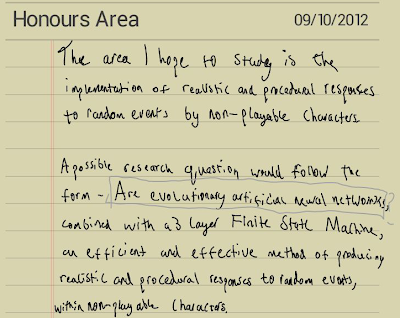 Honours Area 09/10/2012
The area I hope to study is the
implementation of realistic and procedural responses
to random events by non-playable characters
A possible research question would follow the
form - Are evolutionary artificial neural networks,?
combined with a 3 layer Finite State Machine,
an efficient and effective method of producing
realistic and procedural responses to random events,
within non-playable characters.